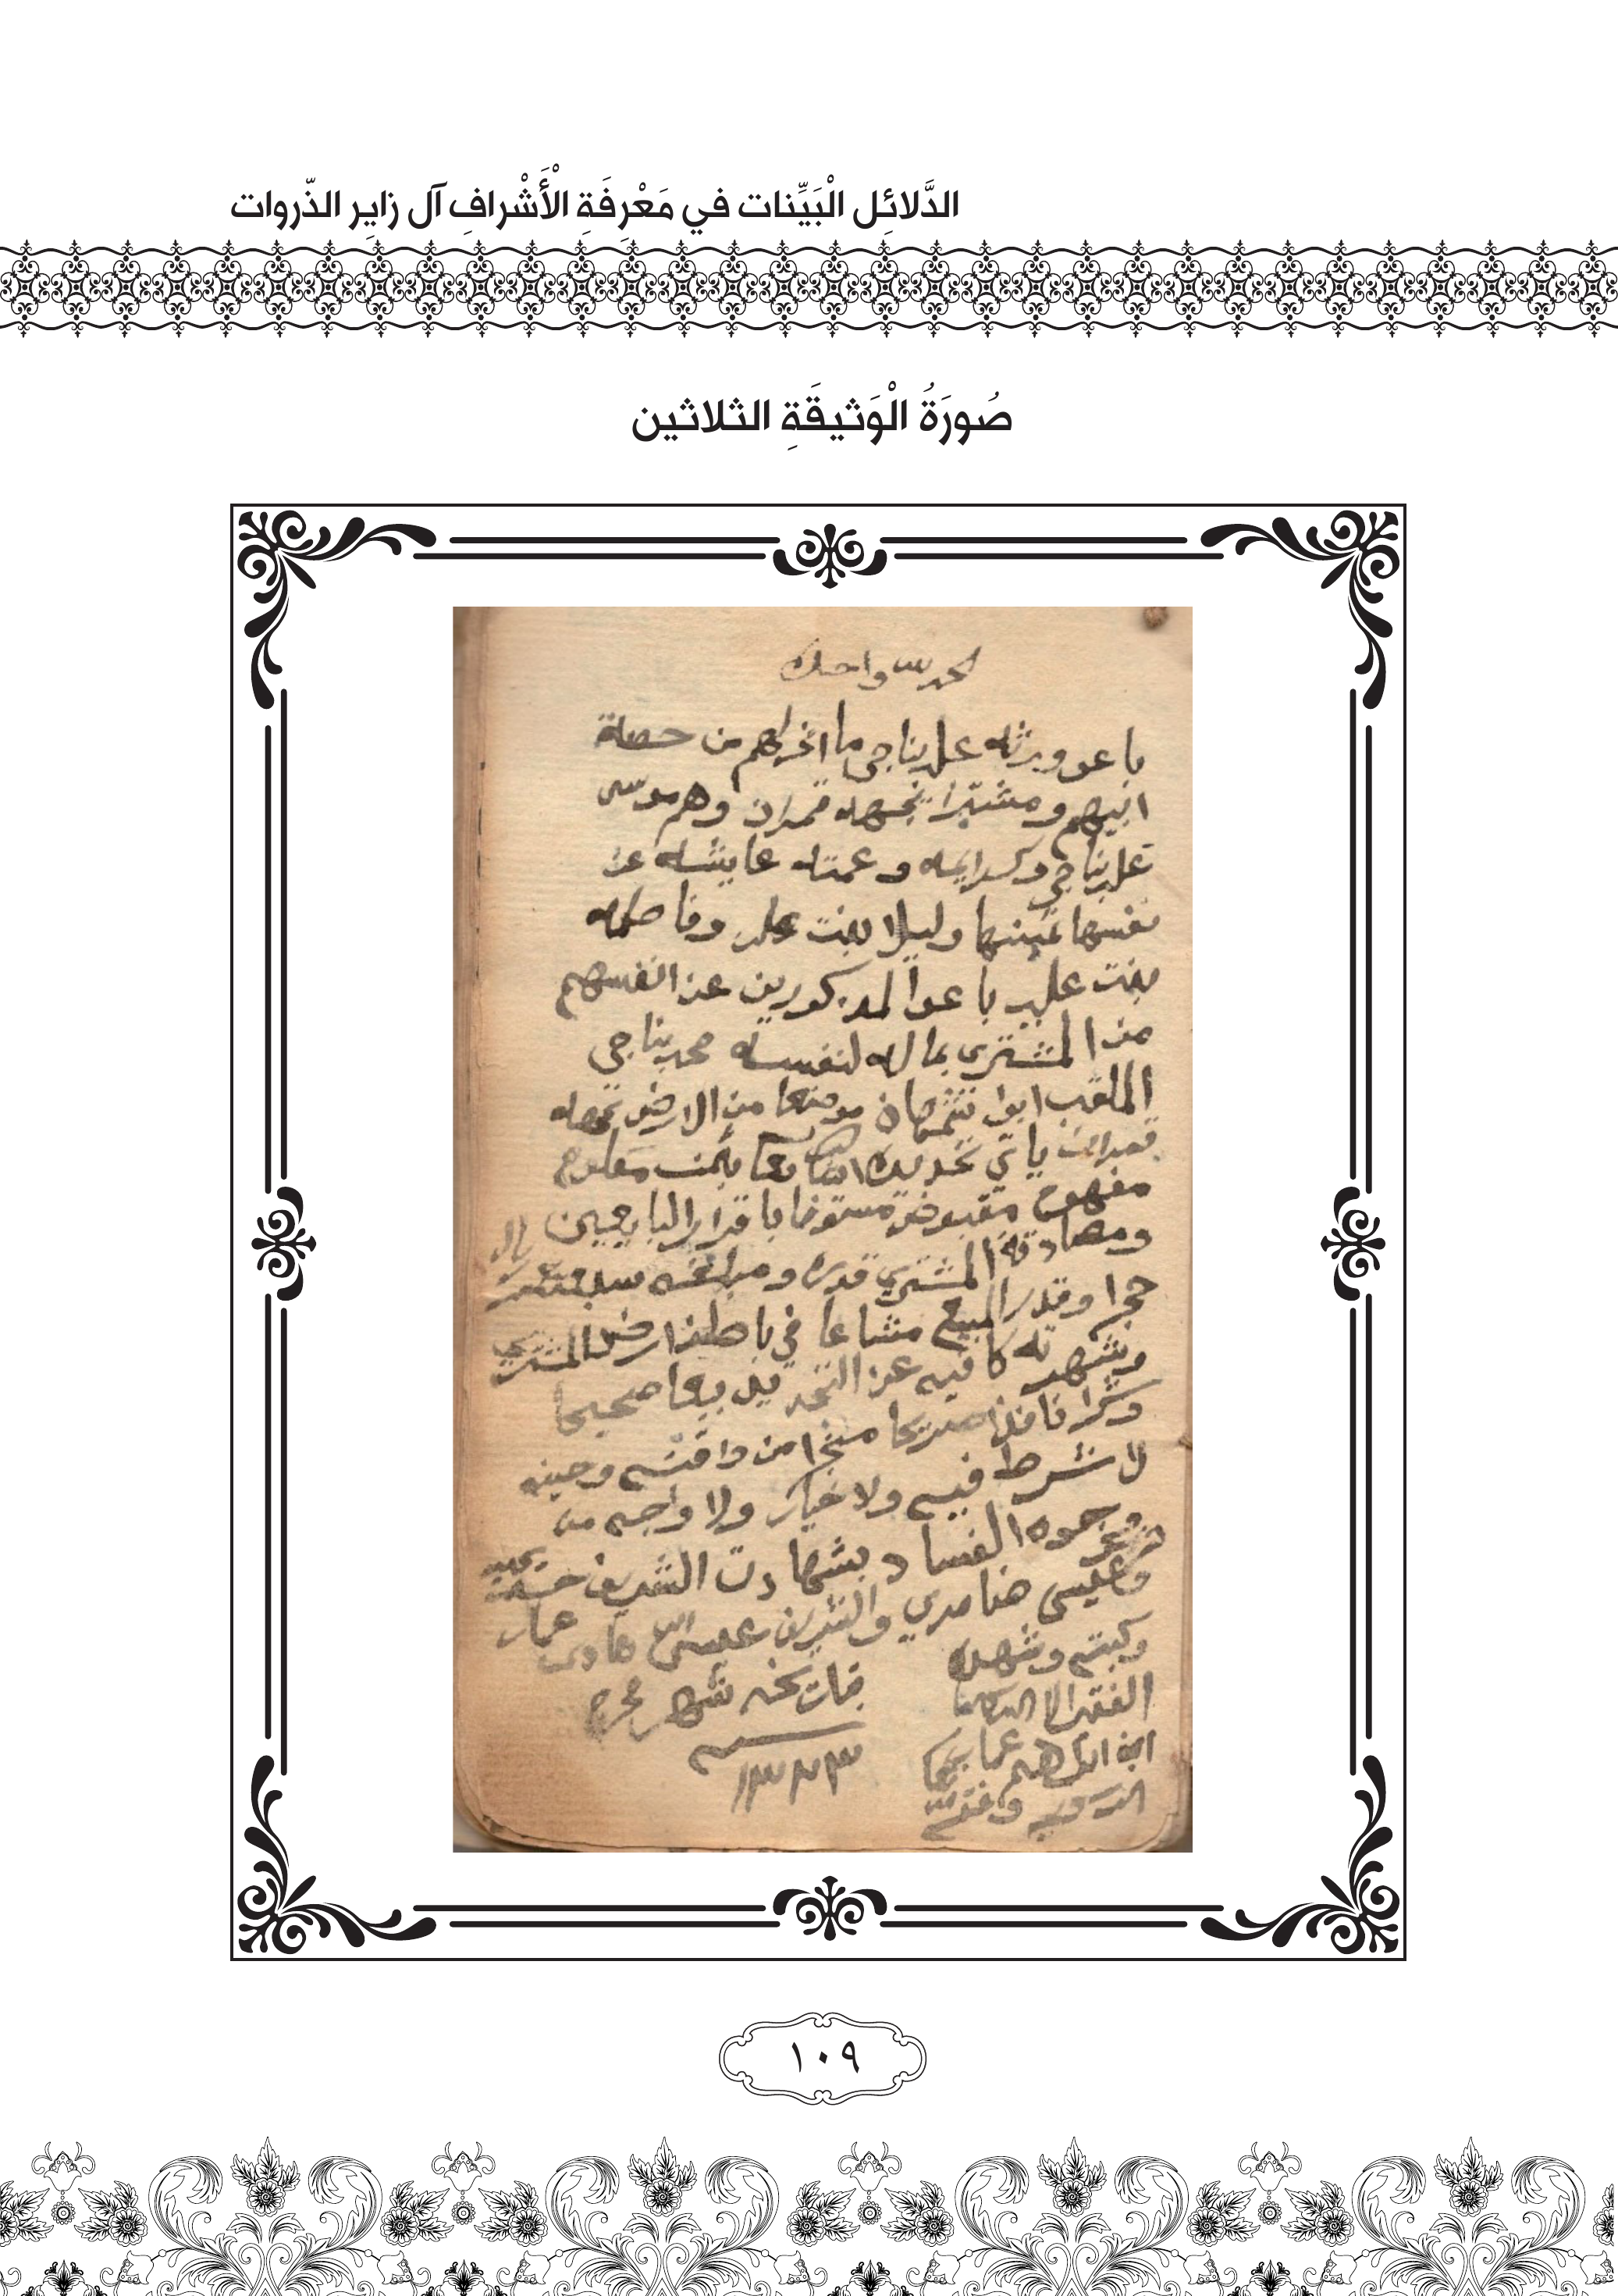 الدَّلائِل الْبَيِّنات في مَعْرِفَةِ الْأَشْرافِ آل زايِر الذّروات
صُورَةُ الْوَثيقَةِ الثلاثين
الحمد لله واحده
باعو ورثه علي ناجي ما انجرالهم من حصلة
ابيهم ومشترا بجهه قمران وهم موسى
علي ناجي وكرايمه وعمته عايشه عن
نفسها وليلا بنت علي وفاطمه
بنت علي باعوا المدكورين عن انفسهم
من المشتري بماله لنفسه محمد ناجي
الملقب ابوا موضعا من الارض
قمران ياتي تحديده بثمن معلوم
مفهوم مقبوض مستوفا باقرار البايعيين
ومصادقة المشتري قدره ومبلغه
حجرا وقدر المبيع مشاعا في باطن ارض المشتري
وشهرته كافيه عن التحديد بيعا صحيحا
نافذا صريحا من وقته وحينه
لا شرط فيه ولا خيار ولا واجه من
وجوه الفساد بشهادت الشريف
وعليسى والشريف هادي عمار
وكبته وشهده
الفقير الا الله
ابن ابراهيم
بتاريخه شهر محرم
سـنه
١٣٢٣
١٠٩